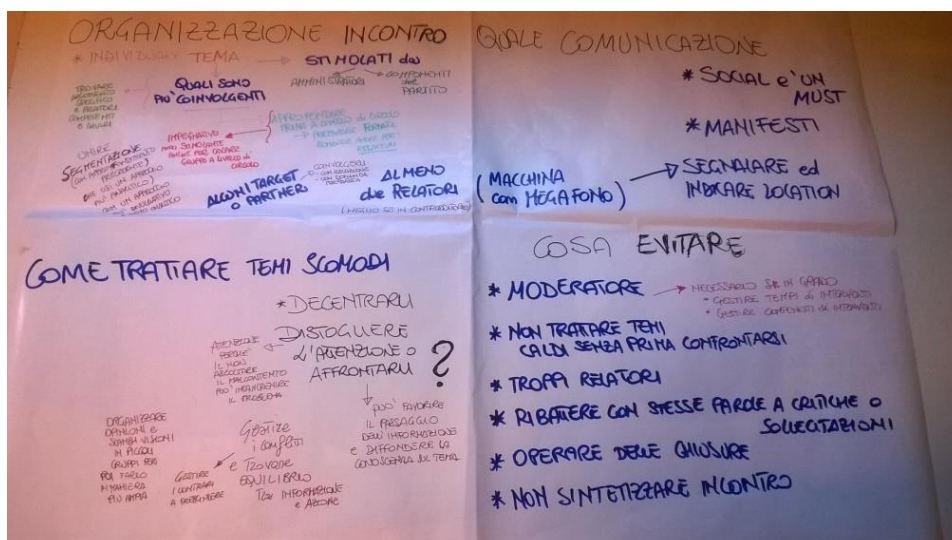 ORGANIZZAZIONE INCONTRO
* INDIVIDUARE TEMA → STIMOLATI da
AMMINISTRATORI
COMPONENTI
del
PARTITO
QUALI SONO
PIÙ COINVOLGENTI
TROVARE
ARGOMENTO
SPECIFICO
E RELATORI
COMPETENTI
E GIUSTI
IMPEGNATIVO
MA STIMOLANTE
ANCHE PER CREARE
GRUPPO A LIVELLO DI
CIRCOLO
APPROFONDIRE
PRIMA A LIVELLO di CIRCOLO
UNIRE
SEGMENTAZIONE
PRECEDENTE)
PIÙ ANALITICO)
CON UN APPROCCIO
PIÙ DIVULGATIVO
ALCUNI TARGET
O PARTNER
COINVOLGERLI
ALMENO
due RELATORI
(MEGLIO SE IN CONTRADDITTORIO)
QUALE COMUNICAZIONE
* SOCIAL e' UN
MUST
* MANIFESTI
(MACCHINA
con MEGAFONO)
→ SEGNALARE ed
INDICARE LOCATION
COME TRATTARE TEMI SCOMODI
* DECENTRARLI
DISTOGLIERE
L'ATTENZIONE O
AFFRONTARLI ?
ATTENZIONE
PERCHE'
IL NON
ASCOLTARE
IL MALCONTENTO
PUO' INCANCRENIRE
IL PROBLEMA
PUO' FAVORIRE
IL PASSAGGIO
DELL'INFORMAZIONE
e DIFFONDERE LA
CONOSCENZA SUL TEMA
Gestire
i conflitti
e Trovare
EQUILIBRIO
TRA INFORMAZIONE
e AZIONE
GESTIRE
I CONTRARI
A PRESCINDERE
ORGANIZZARE
OPINIONI e
SCAMBI VISIONI
IN PICCOLI
GRUPPI PER
POI FARLO
IN MANIERA
PIÙ AMPIA
COSA EVITARE
* MODERATORE → NECESSARIO SIA IN GRADO
* GESTIRE TEMPI di INTERVENTO
* GESTIRE CONTENUTI di INTERVENTO
* NON TRATTARE TEMI
CALDI SENZA PRIMA CONFRONTARSI
* TROPPI RELATORI
* RIBATTERE CON STESSE PAROLE A CRITICHE O
SOLLECITAZIONI
* OPERARE DELLE CHIUSURE
* NON SINTETIZZARE INCONTRO